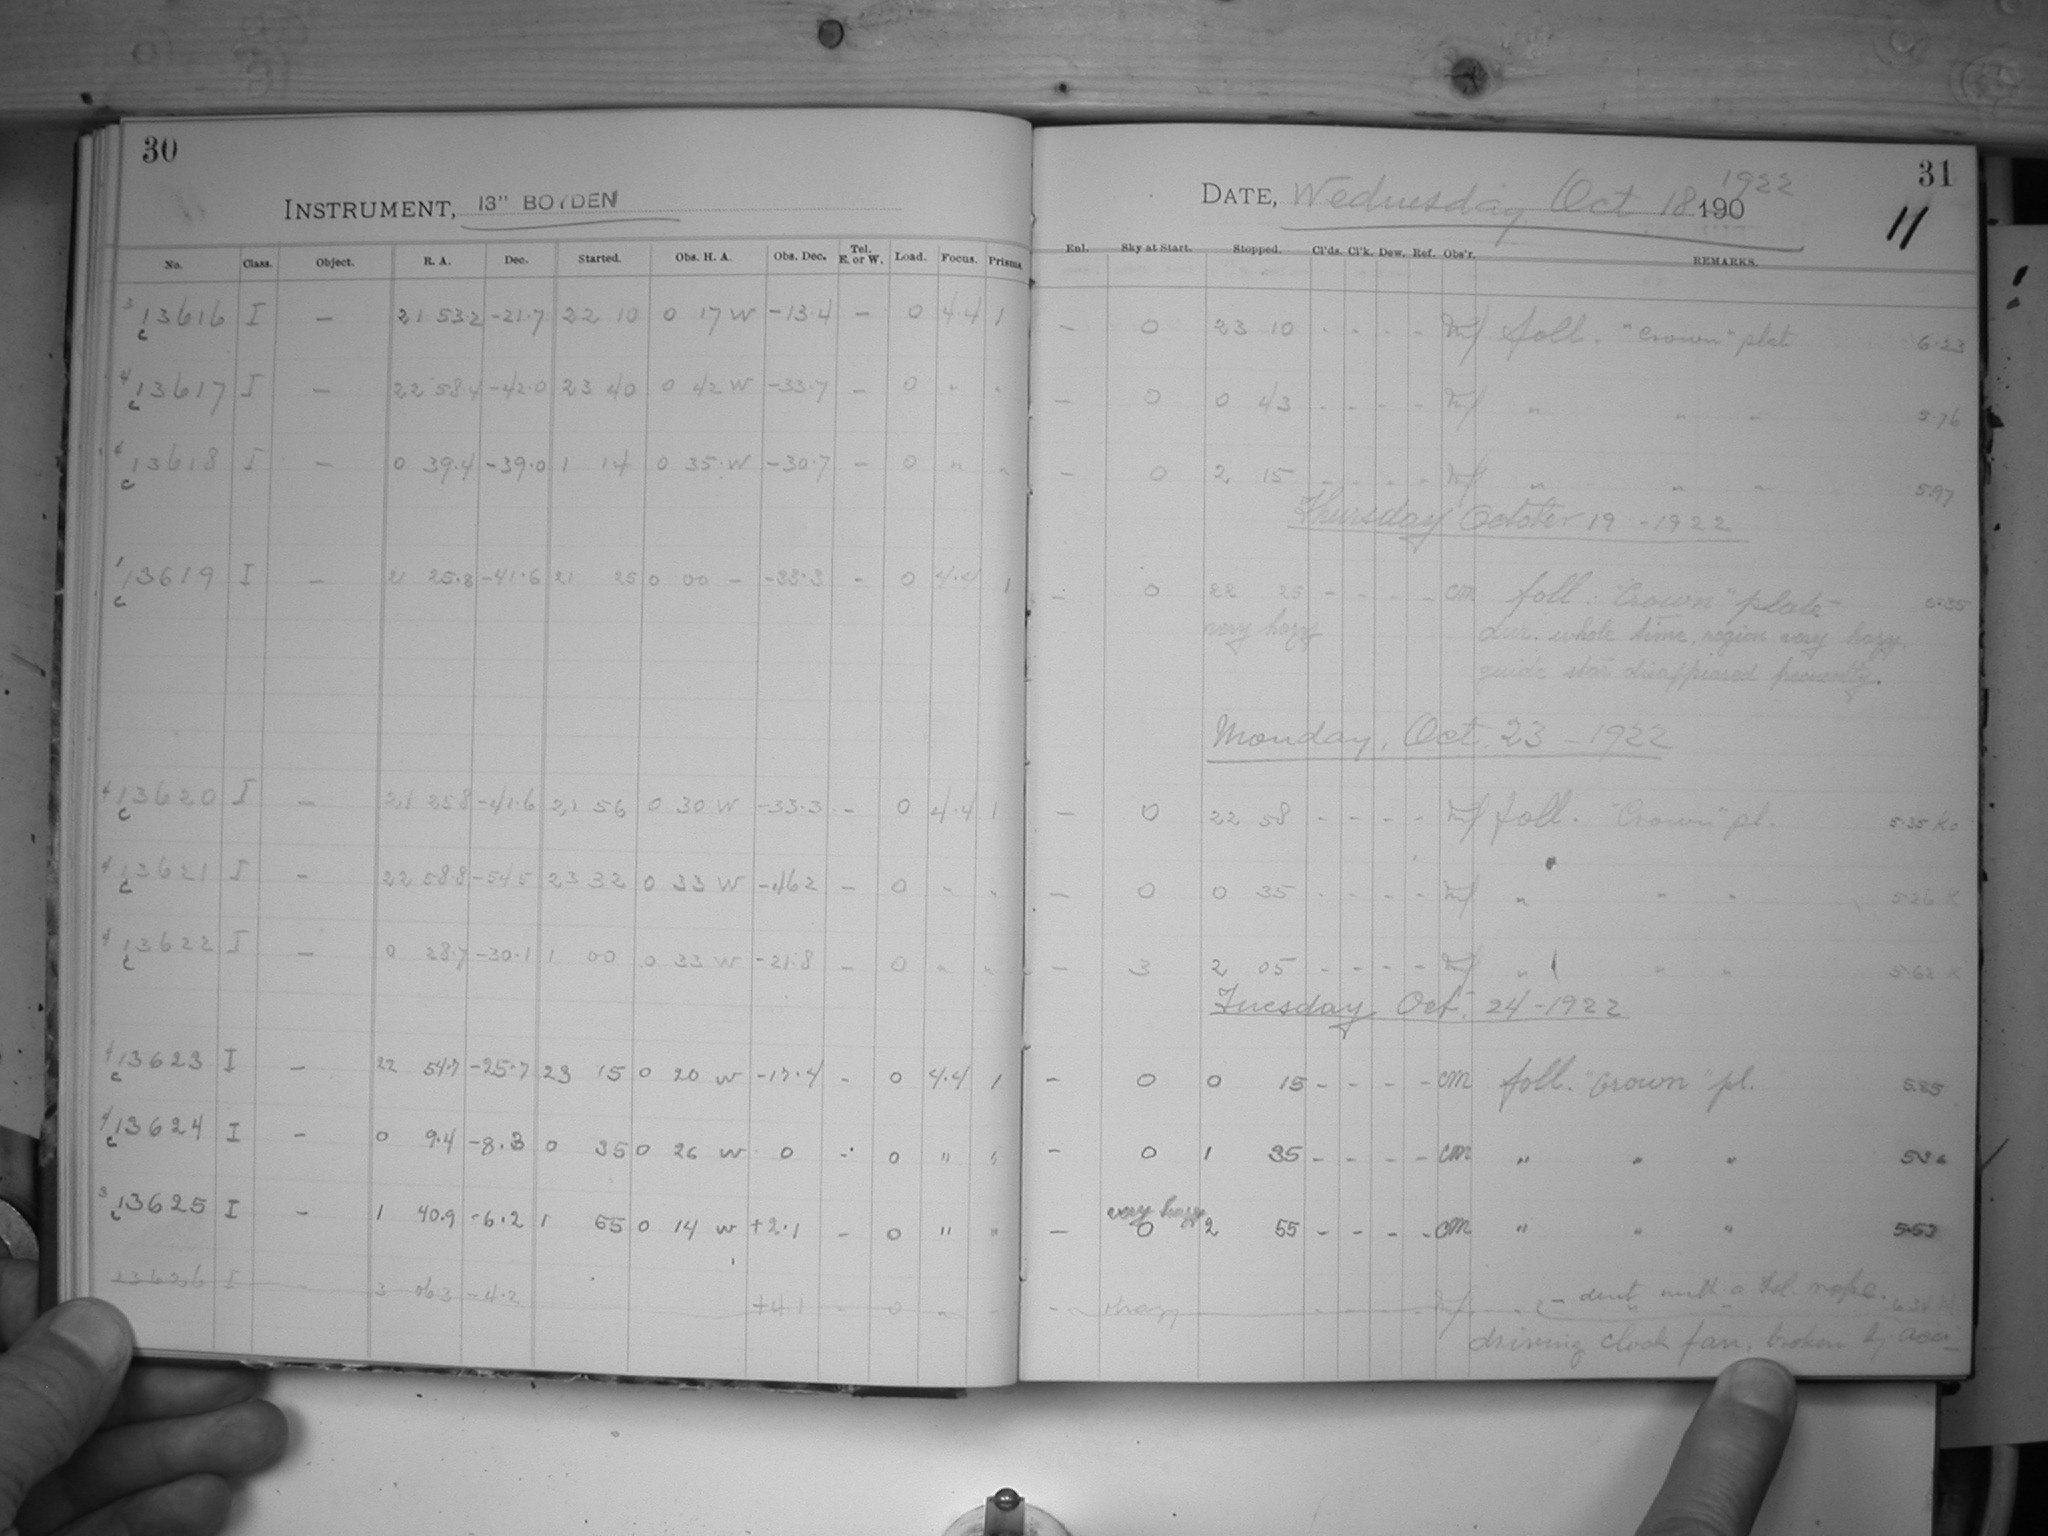 30
INSTRUMENT, 13" BOYDEN
No. Class. Object. R. A. Dec. Started. Obs. H. A. Obs. Dec. Tel. E. or W. Load. Focus. Prisms
3 c 13616 I – 21 53.2 -21.7 22 10 0 17 W -13.4 – 0 4.4 1
4 c 13617 I – 22 58.4 -42.0 23 40 0 42 W -33.7 – 0 " "
4 c 13618 I – 0 39.4 -39.0 1 14 0 35 W -30.7 – 0 " "
1 c 13619 I – 21 25.8 -41.6 21 25 0 00 – -33.3 – 0 4.4 1
4 c 13620 I – 21 25.8 -41.6 21 56 0 30 W -33.3 – 0 4.4 1
4 c 13621 I – 22 58.8 -54.5 23 32 0 33 W -46.2 – 0 " "
4 c 13622 I – 0 28.7 -30.1 1 00 0 33 W -21.8 – 0 " "
4 c 13623 I – 22 54.7 -25.7 23 15 0 20 W -17.4 – 0 4.4 1
4 c 13624 I – 0 9.4 -8.3 0 35 0 26 W 0 – 0 " "
3 c 13625 I – 1 40.9 -6.2 1 55 0 14 W +2.1 – 0 " "
13626 I 3 -4.2 +4.1 – 0 " –
31
DATE, Wednesday Oct 18 190 1922
11
Enl. Sky at Start. Stopped. Cl'ds. Cl'k. Dew. Ref. Obs'r. REMARKS.
– 0 23 10 - - - - foll. "Crown" plat 6.23
– 0 0 43 - - - - " " " 5.76
– 0 2 15 - - - - " " " 5.97
Thursday October 19 - 1922
– 0 22 25 - - - - CM foll. "Crown" plate 5.35
very hazy dur. whole time, region very hazy.
guide star disappeared frecuently.
Monday, Oct. 23 - 1922
– 0 22 58 - - - - foll. "Crown" pl. 5.35
– 0 0 35 - - - - " " " 5.26 K
– 3 2 05 - - - - " " " 5.62 K
Tuesday Oct. 24 - 1922
– 0 0 15 - - - - CM foll. "Crown" pl. 5.85
– 0 1 35 - - - - CM " " "
very hazy
– 0 2 55 - - - - CM " " " 5.53
– hazy - dent with a rope.
driving clock fan, broken by acci-